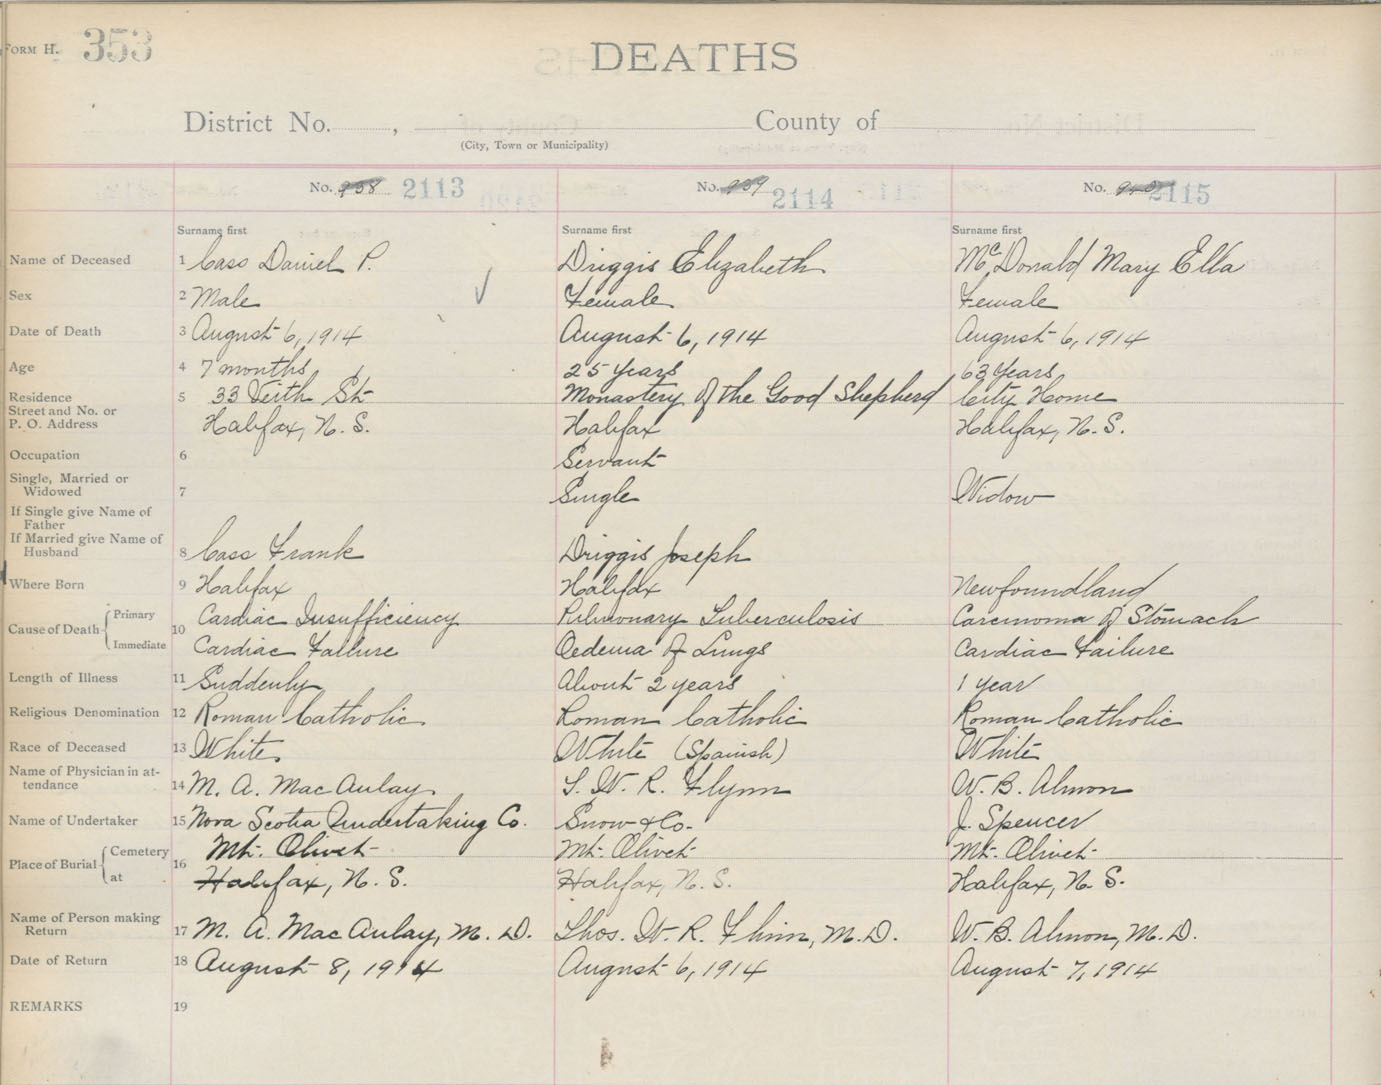 FORM H. 353
DEATHS
District No. , County of
(City, Town or Municipality)
No. 938 2113 No. 939 2114 No. 2115
Surname first Surname first Surname first
Name of Deceased 1 Cass Daniel P. Driggis Elizabeth McDonald Mary Ella
Sex 2 Male Female Female
Date of Death 3 August 6, 1914 August 6, 1914 August 6, 1914
Age 4 7 months 25 years 63 years
Residence 5 33 Veith St. Monastery of the Good Shepherd City Home
Street and No. or
P. O. Address Halifax, N. S. Halifax Halifax, N. S.
Occupation 6 Servant
Single, Married or
Widowed 7 Single Widow
If Single give Name of
Father
If Married give Name of
Husband 8 Cass Frank Driggis Joseph
Where Born 9 Halifax Halifax Newfoundland
Cause of Death Primary 10 Cardiac Insufficiency Pulmonary Tuberculosis Carcinoma of Stomach
Immediate Cardiac Failure Oedema of Lungs Cardiac Failure
Length of Illness 11 Suddenly About 2 years 1 year
Religious Denomination 12 Roman Catholic Roman Catholic Roman Catholic
Race of Deceased 13 White White (Spanish) White
Name of Physician in at-
tendance 14 M. A. MacAulay T. W. R. Flynn W. B. Almon
Name of Undertaker 15 Nova Scotia Undertaking Co. Snow & Co. J. Spencer
Place of Burial Cemetery 16 Mt. Olivet Mt. Olivet Mt. Olivet
at Halifax, N. S. Halifax, N. S. Halifax, N. S.
Name of Person making
Return 17 M. A. MacAulay, M. D. Thos. W. R. Flinn, M. D. W. B. Almon, M. D.
Date of Return 18 August 8, 1914 August 6, 1914 August 7, 1914
REMARKS 19